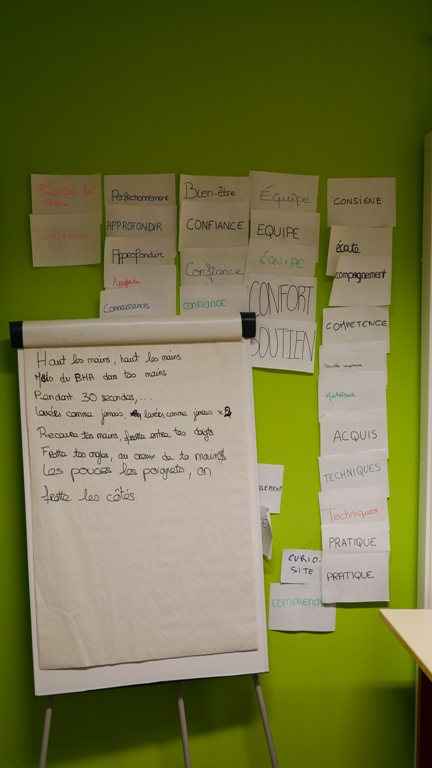 Perfectionnement
APPROFONDIR
Approfondir
Approfondir
Connaissances
Bien-être
CONFIANCE
Confiance
CONFIANCE
Équipe
EQUIPE
ÉQUIPE
CONFORT
SOUTIEN
CONSIGNE
écoute
compagnement
COMPETENCE
ACQUIS
TECHNIQUES
Techniques
PRATIQUE
PRATIQUE
SSEMENT
CURIO-
SITE
COMPREND
Haut les mains, haut les mains
Mets du BHA dans tes mains
Pendant 30 secondes,...
Lavées comme jamais, lavées comme jamais x2
Recouvre tes mains, frotte entre tes doigts
Frotte tes ongles, au creux de ta main
Les pouces les poignets, on
frotte les côtés